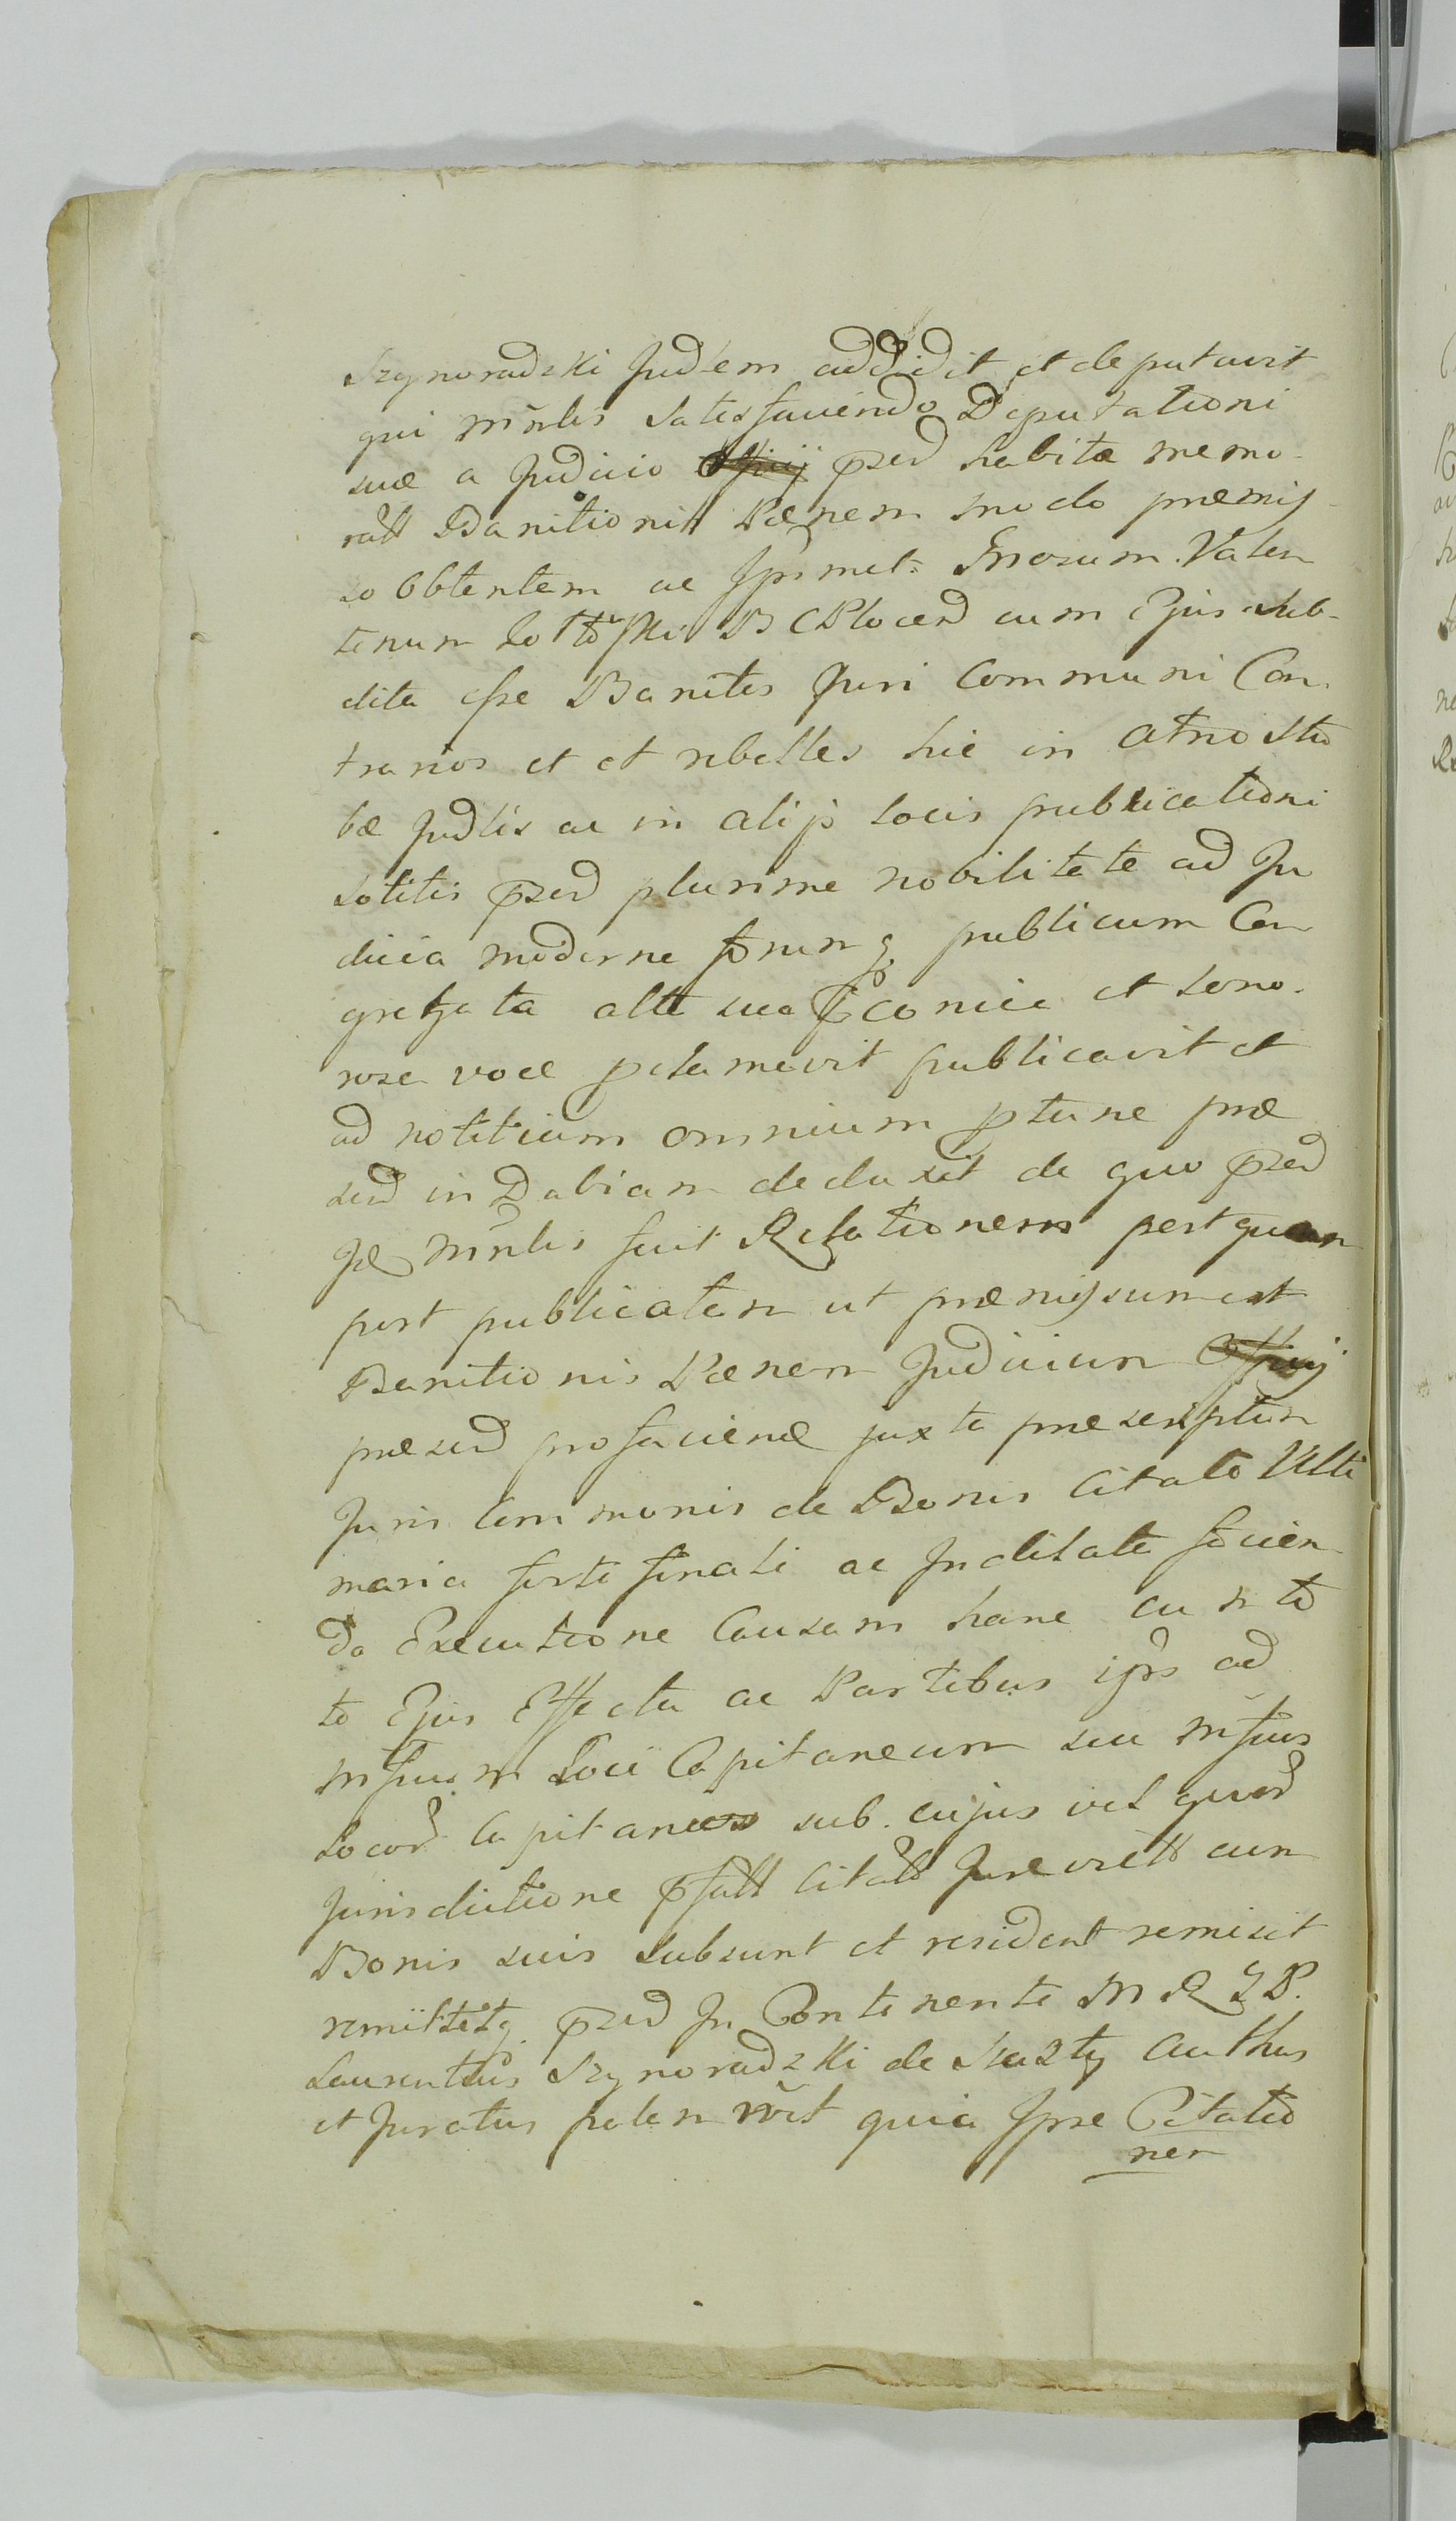 Szynoradzki Judlem addidit et deputavit
qui Mnlis satisfaciendo Deputationi
suæ a Judicio Officij præsd habitæ memo-
ratt Banitionis Pænem modo præmis-
so obtentem ac Ipsmet Gnosum Valen
tenum B C Plocen cum Ejus sub-
dita esse Banites Juri Communi Con-
trarios et et rebelles hic in
bæ Judlis ac in alijs locis publicationi
solitis præsd plurime nobilitete ad Ju
dicia moderne forumq publicum Con
gregata alte sua et sono-
rose voce pclamavit publicavit et
ad notitiam omnium ptune præ
send in Dabiam deduxit de quo præsd
Mnlis fecit Relationem post quam
post publicaten ut præmissum est
Banitionis Pænem Judicium Officij
præsend pro faciend juxta præscriptum
Juris Communis de Bonis Citato Ulti
maria forti finali ac Indilate facien
da Executione Causam hanc cum to
to Ejus Effectu ac Partibus ipsis ad
Mfium Loci Capitaneum seu Mfios
Locor Capitaneos sub cujus vel quor
Jurisdictione pfatt Citatt Jure victt cum
Bonis suis subsunt et resident remisit
remittitq præsd In Contenente M R G P
Laurentius Szynoradzki de Auther
et Juratus palam rct quia Ipse Citatio
nem